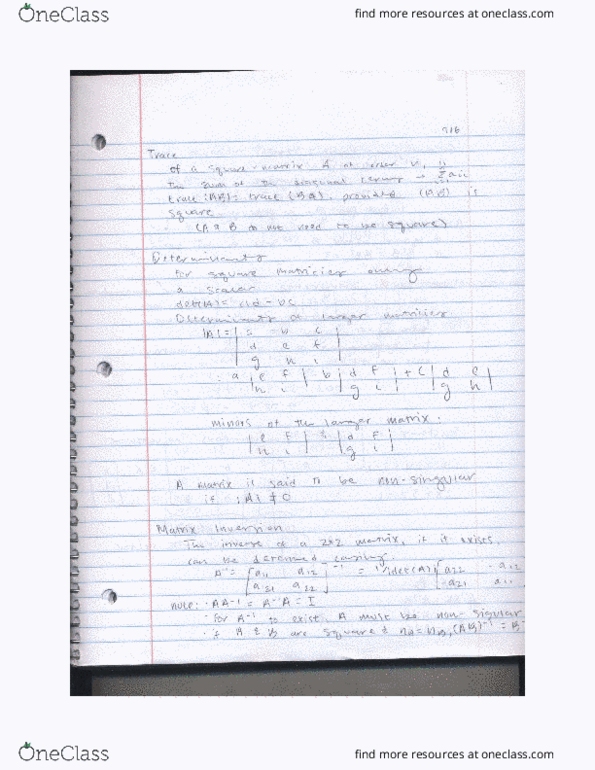 OneClass
find more resources at oneclass.com
Trace
of a square matrix A of order n, is
the sum of the diagonal terms → Σaii
trace (AB) = trace (BA), provided (AB) is
square
(A & B do not need to be square)
Determinants
for square matricies only
a scalar
det(A) = ad - bc
Determinants of larger matricies
|A| = | a b c |
| d e f |
| g h i |
= a | e f | b | d f | + c | d e |
| h i | | g i | | g h |
minors of the larger matrix.
| e f | | d f |
| h i | | g i |
A matrix is said to be non-singular
if |A| ≠ 0
Matrix Inversion
The inverse of a 2x2 matrix, if it exists
can be determined using
A⁻¹ = [ a11 a12 ]⁻¹ = 1/det(A) [ a22 - a12
[ a21 a22 ] - a21 a11
note: · AA⁻¹ = A⁻¹A = I
· for A⁻¹ to exist A must be non-sigular
· if A & B are square & nA = nB, (AB)⁻¹ = B⁻
OneClass
find more resources at oneclass.com